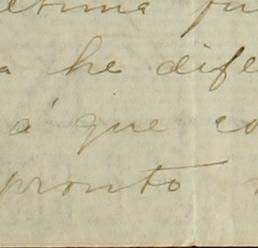 ultima fu
a he dife
á que co
pronto